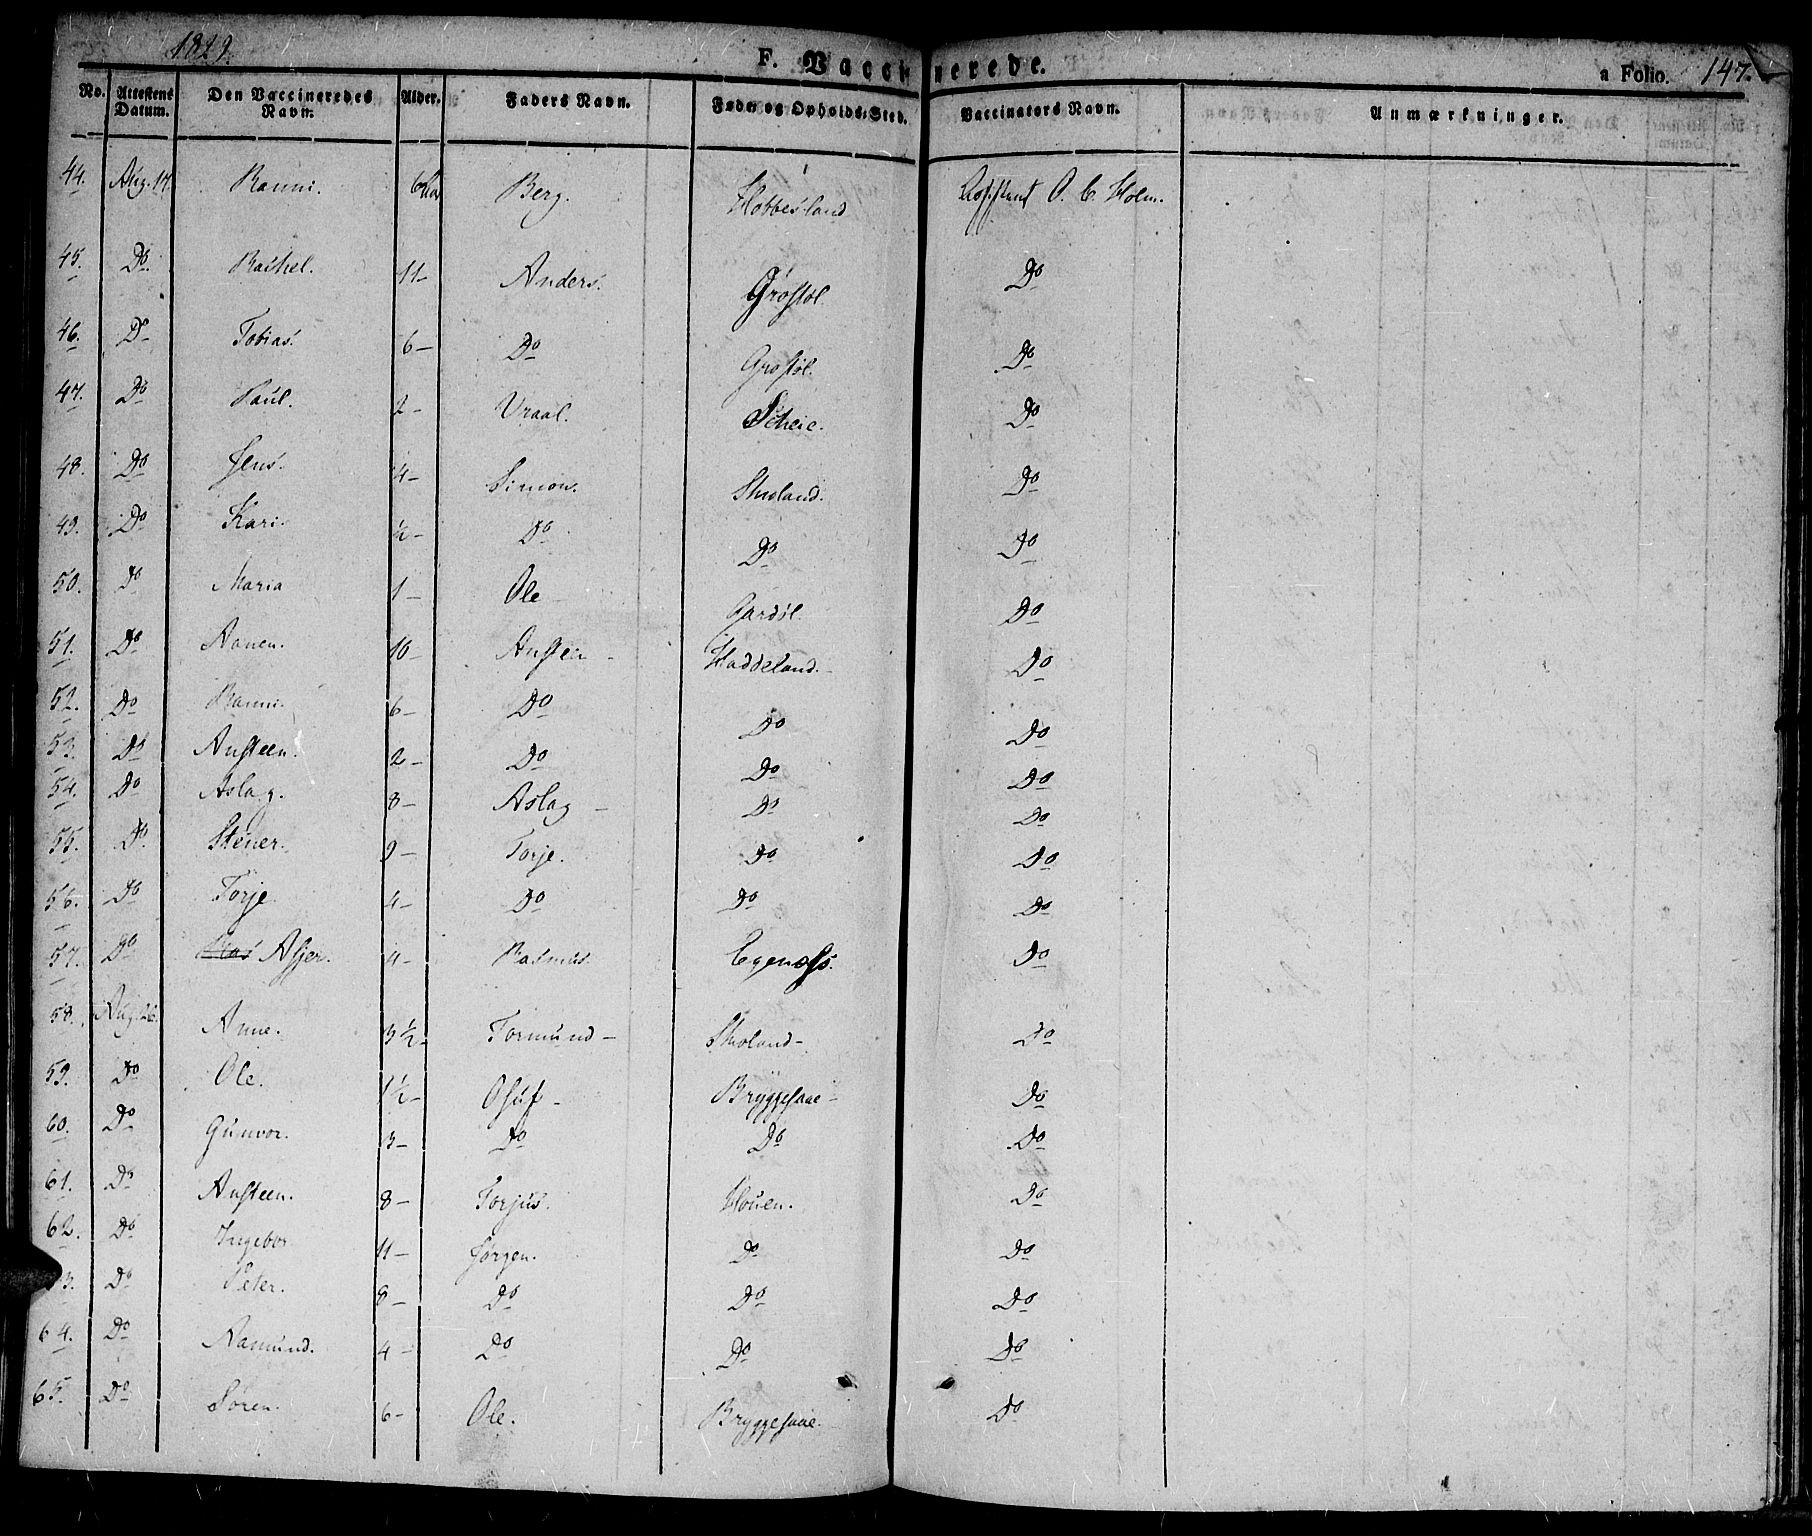 1829.
F. Vaccinerede.
a Folio. 147.
No. Attestens Datum. Den Vaccineredes Navn. Alder. Faders Navn. Føde- og Opholds-Sted. Vaccinators Navn. Anmærkninger.
44. Aug. 17. Ranni. 6 Berg. Hobbesland O. C. Holm.
45. Do Rachel. 11- Anders. Grøstøl. Do
46. Do Tobias. 6- Do Grøstøl. Do
47. Do Paul. 2- Vraal. Scheie. Do
48. Do Jens. 4- Simon. Skioland. Do
49. Do Kari. ½- Do Do Do
50. Do Maria 1- Ole - Gardøl. Do
51. Do Aanen. 10- Austen - Haddeland. Do
52. Do Ranni. 6- Do Do Do
53. Do Austeen. 2- Do Do Do
54. Do Aslag. 8- Aslag - Do Do
55. Do Stener. 9- Torje. Do Do
56. Do Torje 4- Do Do Do
57. Do Asjer. 4- Rasmus Do
58. Aug. 26. Anne. 3½- Tormund- Skioland- Do
59. Do Ole. 1½- Osuf- Bryggesaae- Do
60. Do Gunvor. 3- Do Do Do
61. Do Austeen. 8- Torjus. Houen. Do
62. Do Ingebor 11- Jørgen. Do Do
63. Do Peter. 8- Do Do Do
64. Do Aamund. 4- Do Do Do
65. Do Søren. 6- Ole. Bryggesaae. Do